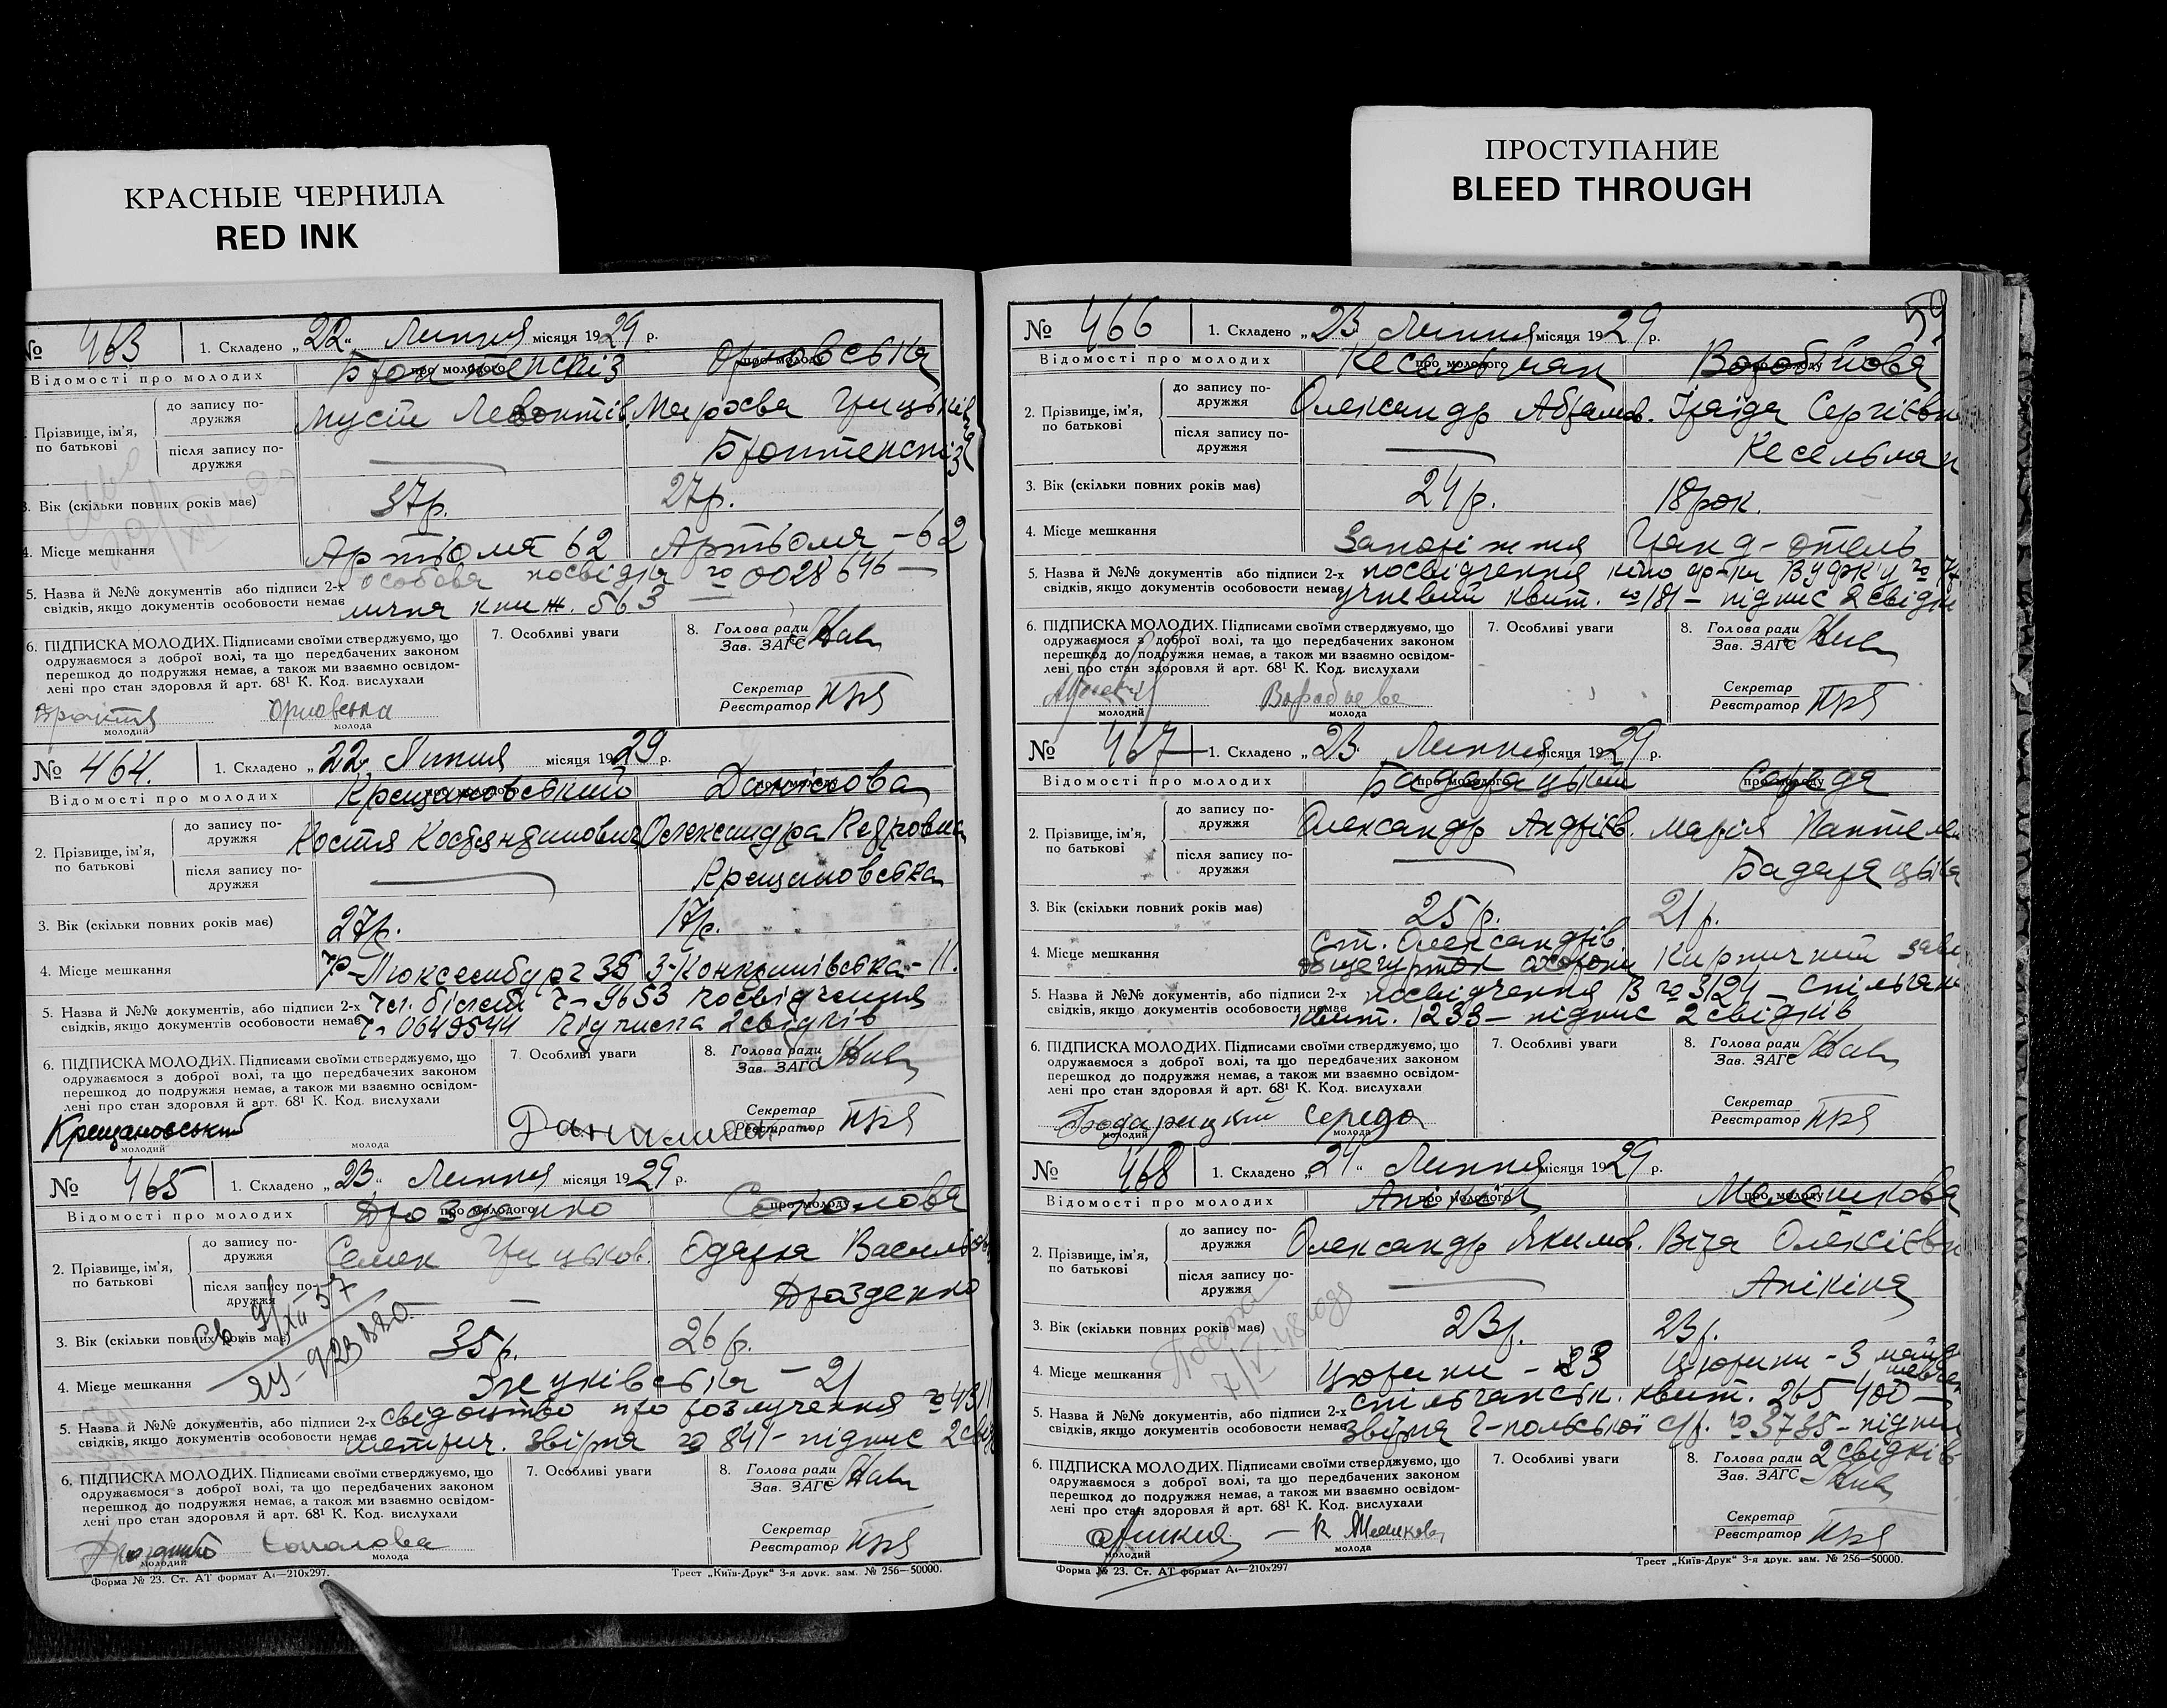 КРАСНЫЕ ЧЕРНИЛА
RED INK
ПРОСТУПАНИЕ
BLEED THROUGH
№ 463 1. Складено „22“ Липня місяця 1929 р.
Відомості про молодих про молодого про молоду
Орловська
Прізвище, ім'я, по батькові
до запису по-
дружжя
після запису по-
дружжя
3. Вік (скільки повних років має) 37р. 27р.
4. Місце мешкання Артьома 62 Артьома - 62
5. Назва й №№ документів або підписи 2-х особова посвідка № 0028646 —
свідків, якщо документів особовости немає книж. 563
6. ПІДПИСКА МОЛОДИХ. Підписами своїми стверджуємо, що
одружаємося з доброї волі, та що передбачених законом
перешкод до подружжя немає, а також ми взаємно освідом-
лені про стан здоров'я й арт. 68¹ К. Код. вислухали
Орловська
молодий молода
7. Особливі уваги
8. Голова ради
Зав. ЗАГС
Секретар
Реєстратор
№ 464. 1. Складено „22 Липня місяця 1929 р.
Відомості про молодих
Крещановський Данілова
2. Прізвище, ім'я,
по батькові
до запису по-
дружжя
Костя Костянтинович Олександра Петровна
після запису по-
дружжя
Крещановська
3. Вік (скільки повних років має) 27р. 17р.
4. Місце мешкання Р-Люксембург 35
5. Назва й №№ документів, або підписи 2-х білет Ч-9653 посвідчення
свідків, якщо документів особовости немає Ч-0649544 Підписка 2 свідків
6. ПІДПИСКА МОЛОДИХ. Підписами своїми стверджуємо, що
одружаємося з доброї волі, та що передбачених законом
перешкод до подружжя немає, а також ми взаємно освідом-
лені про стан здоров'я й арт. 68¹ К. Код. вислухали
Крещановський
молодий молода
7. Особливі уваги
8. Голова ради
Зав. ЗАГС
Секретар
Реєстратор
№ 465 1. Складено „23“ Липня місяця 1929 р.
Відомості про молодих про молодого про молоду
Дрозденко Соколова
2. Прізвище, ім'я,
по батькові
до запису по-
дружжя
Семен Грицьков. Одарка
після запису по-
дружжя
— Дрозденко
3. Вік (скільки повних років має) 35р. 26р.
4. Місце мешкання - 21
5. Назва й №№ документів, або підписи 2-х свідоцтво про розлучення
свідків, якщо документів особовости немає метрич. звірка № 841 - підпис
6. ПІДПИСКА МОЛОДИХ. Підписами своїми стверджуємо, що
одружаємося з доброї волі, та що передбачених законом
перешкод до подружжя немає, а також ми взаємно освідом-
лені про стан здоров'я й арт. 68¹ К. Код. вислухали
Соколова
молодий молода
7. Особливі уваги
8. Голова ради
Зав. ЗАГС
Секретар
Реєстратор
Форма № 23. Ст. АТ формат А₄—210х297. Трест „Київ-Друк“ 3-я друк. зам. № 256—50000.
59
№ 466 1. Складено „23 Липня місяця 1929 р.
Відомості про молодих про молодого про молоду
Кесельман Воробйова
2. Прізвище, ім'я,
по батькові
до запису по-
дружжя
Олександр Абрамов. Іраїда Сергієвн
після запису по-
дружжя
Кесельман
3. Вік (скільки повних років має) 24р. 18 рок.
4. Місце мешкання Запоріжжя Гранд-отель
5. Назва й №№ документів або підписи 2-х посвідчення кіно ф-ки ВУФКУ
свідків, якщо документів особовости немає учневий квит. № 181 - підпис 2 свідк
6. ПІДПИСКА МОЛОДИХ. Підписами своїми стверджуємо, що
одружаємося з доброї волі, та що передбачених законом
перешкод до подружжя немає, а також ми взаємно освідом-
лені про стан здоров'я й арт. 68¹ К. Код. вислухали
Воробьева
молодий молода
7. Особливі уваги
8. Голова ради
Зав. ЗАГС
Секретар
Реєстратор
№ 467 1. Складено „23 Липня місяця 1929 р.
Відомості про молодих про молодого про молоду
Бадарацький Середа
2. Прізвище, ім'я,
по батькові
до запису по-
дружжя
Олександр Андрієв. Марія Пантелем
після запису по-
дружжя
Бадарацька
3. Вік (скільки повних років має) 25р. 21р.
4. Місце мешкання ст. Олександрів.
гуртож охорони Кирпичний заво
5. Назва й №№ документів або підписи 2-х посвідчення В № 3124 - спільчан
свідків, якщо документів особовости немає квит. 1233 - підпис 2 свідків
6. ПІДПИСКА МОЛОДИХ. Підписами своїми стверджуємо, що
одружаємося з доброї волі, та що передбачених законом
перешкод до подружжя немає, а також ми взаємно освідом-
лені про стан здоров'я й арт. 68¹ К. Код. вислухали
Бодарецкий Середа
молодий молода
7. Особливі уваги
8. Голова ради
Зав. ЗАГС
Секретар
Реєстратор
№ 468 1. Складено „24“ Липня місяця 1929 р.
Відомості про молодих про молодого про молоду
Анікін Мелешкова
2. Прізвище, ім'я,
по батькові
до запису по-
дружжя
Олександр Якимов. Віра Олексієвн
після запису по-
дружжя
Анікіна
3. Вік (скільки повних років має) 23р. 23р.
4. Місце мешкання Цюрупи - 23 Цюрупи - 3
5. Назва й №№ документів або підписи 2-х спільчанськ. квит. 265400 —
свідків, якщо документів особовости немає звірка с/р. № 3735 - підпис
2 свідків
6. ПІДПИСКА МОЛОДИХ. Підписами своїми стверджуємо, що
одружаємося з доброї волі, та що передбачених законом
перешкод до подружжя немає, а також ми взаємно освідом-
лені про стан здоров'я й арт. 68¹ К. Код. вислухали
молодий молода
7. Особливі уваги
8. Голова ради
Зав. ЗАГС
Секретар
Реєстратор
Форма № 23. Ст. АТ формат А₄—210х297 Трест „Київ-Друк“ 3-я друк. зам. № 256—50000.